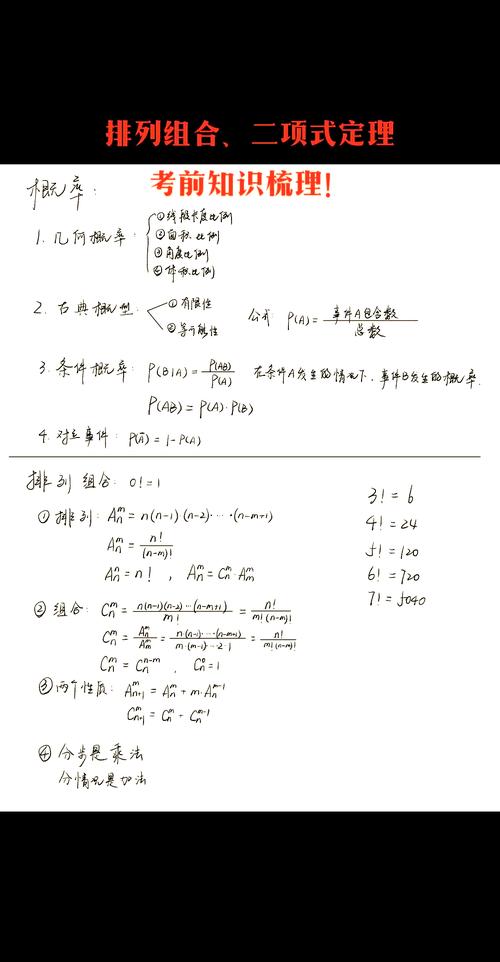 排列组合、二项式定理
考前知识梳理!
概率:
1. 几何概率: ①线段长度比例
②面积比例
③角度比例
④体积比例
2. 古典概型: ①有限性
②等可能性
公式: P(A) = 事件A包含数/总数
3. 条件概率: P(B|A) = P(AB)/P(A) 在条件A发生的情况下,事件B发生的概率.
P(AB) = P(A)·P(B)
4. 对立事件: P(Ā) = 1-P(A)
排列组合: 0! = 1
①排列: Aₙᵐ = n(n-1)(n-2)·…·(n-m+1)
Aₙᵐ = n!/(n-m)!
Aₙⁿ = n! , Aₙᵐ = Cₙᵐ·Aₘᵐ
3! = 6
4! = 24
5! = 120
6! = 720
7! = 5040
②组合: Cₙᵐ = n(n-1)(n-2)…(n-m+1)/m! = n!/m!(n-m)!
Cₙᵐ = Aₙᵐ/Aₘᵐ = n(n-1)·…(n-m+1)/m·(m-1)…2·1 = n!/m!(n-m)!
Cₙᵐ = Cₙⁿ⁻ᵐ , Cₙ⁰ = 1
③两个性质: Aₙ₊₁ᵐ = Aₙᵐ + m·Aₙᵐ⁻¹
Cₙ₊₁ᵐ = Cₙᵐ + Cₙᵐ⁻¹
④分步是乘法
分情况是加法